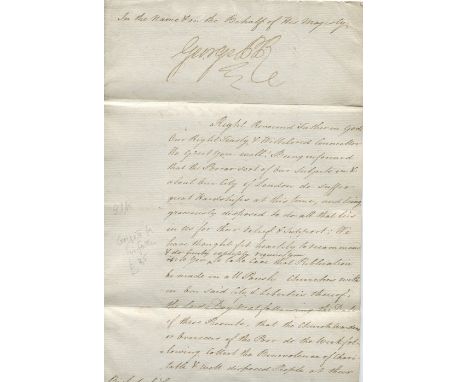 In the Name & in the Behalf of His Majesty,
George P R
Right Reverend Father in God
Our Right Trusty & Wellbeloved Councellor
We Greet you well: Being informed
that the Poorer sort of our Subjects in &
about Our City of London do suffer
great Hardships at this time, and being
graciously disposed to do all that lies
in us for their Relief & Support: We
have thought fit heartily to recommend
& do firmly
you to take care that Publication
be made in all Parish Churches with
in our said City & Liberties thereof,
the Lord's Day next following the Date
of these Presents, that the Church Wardens
or Overseers of the Poor do the Week fol-
lowing collect the Benevolence of Chari-
table & well disposed People at their